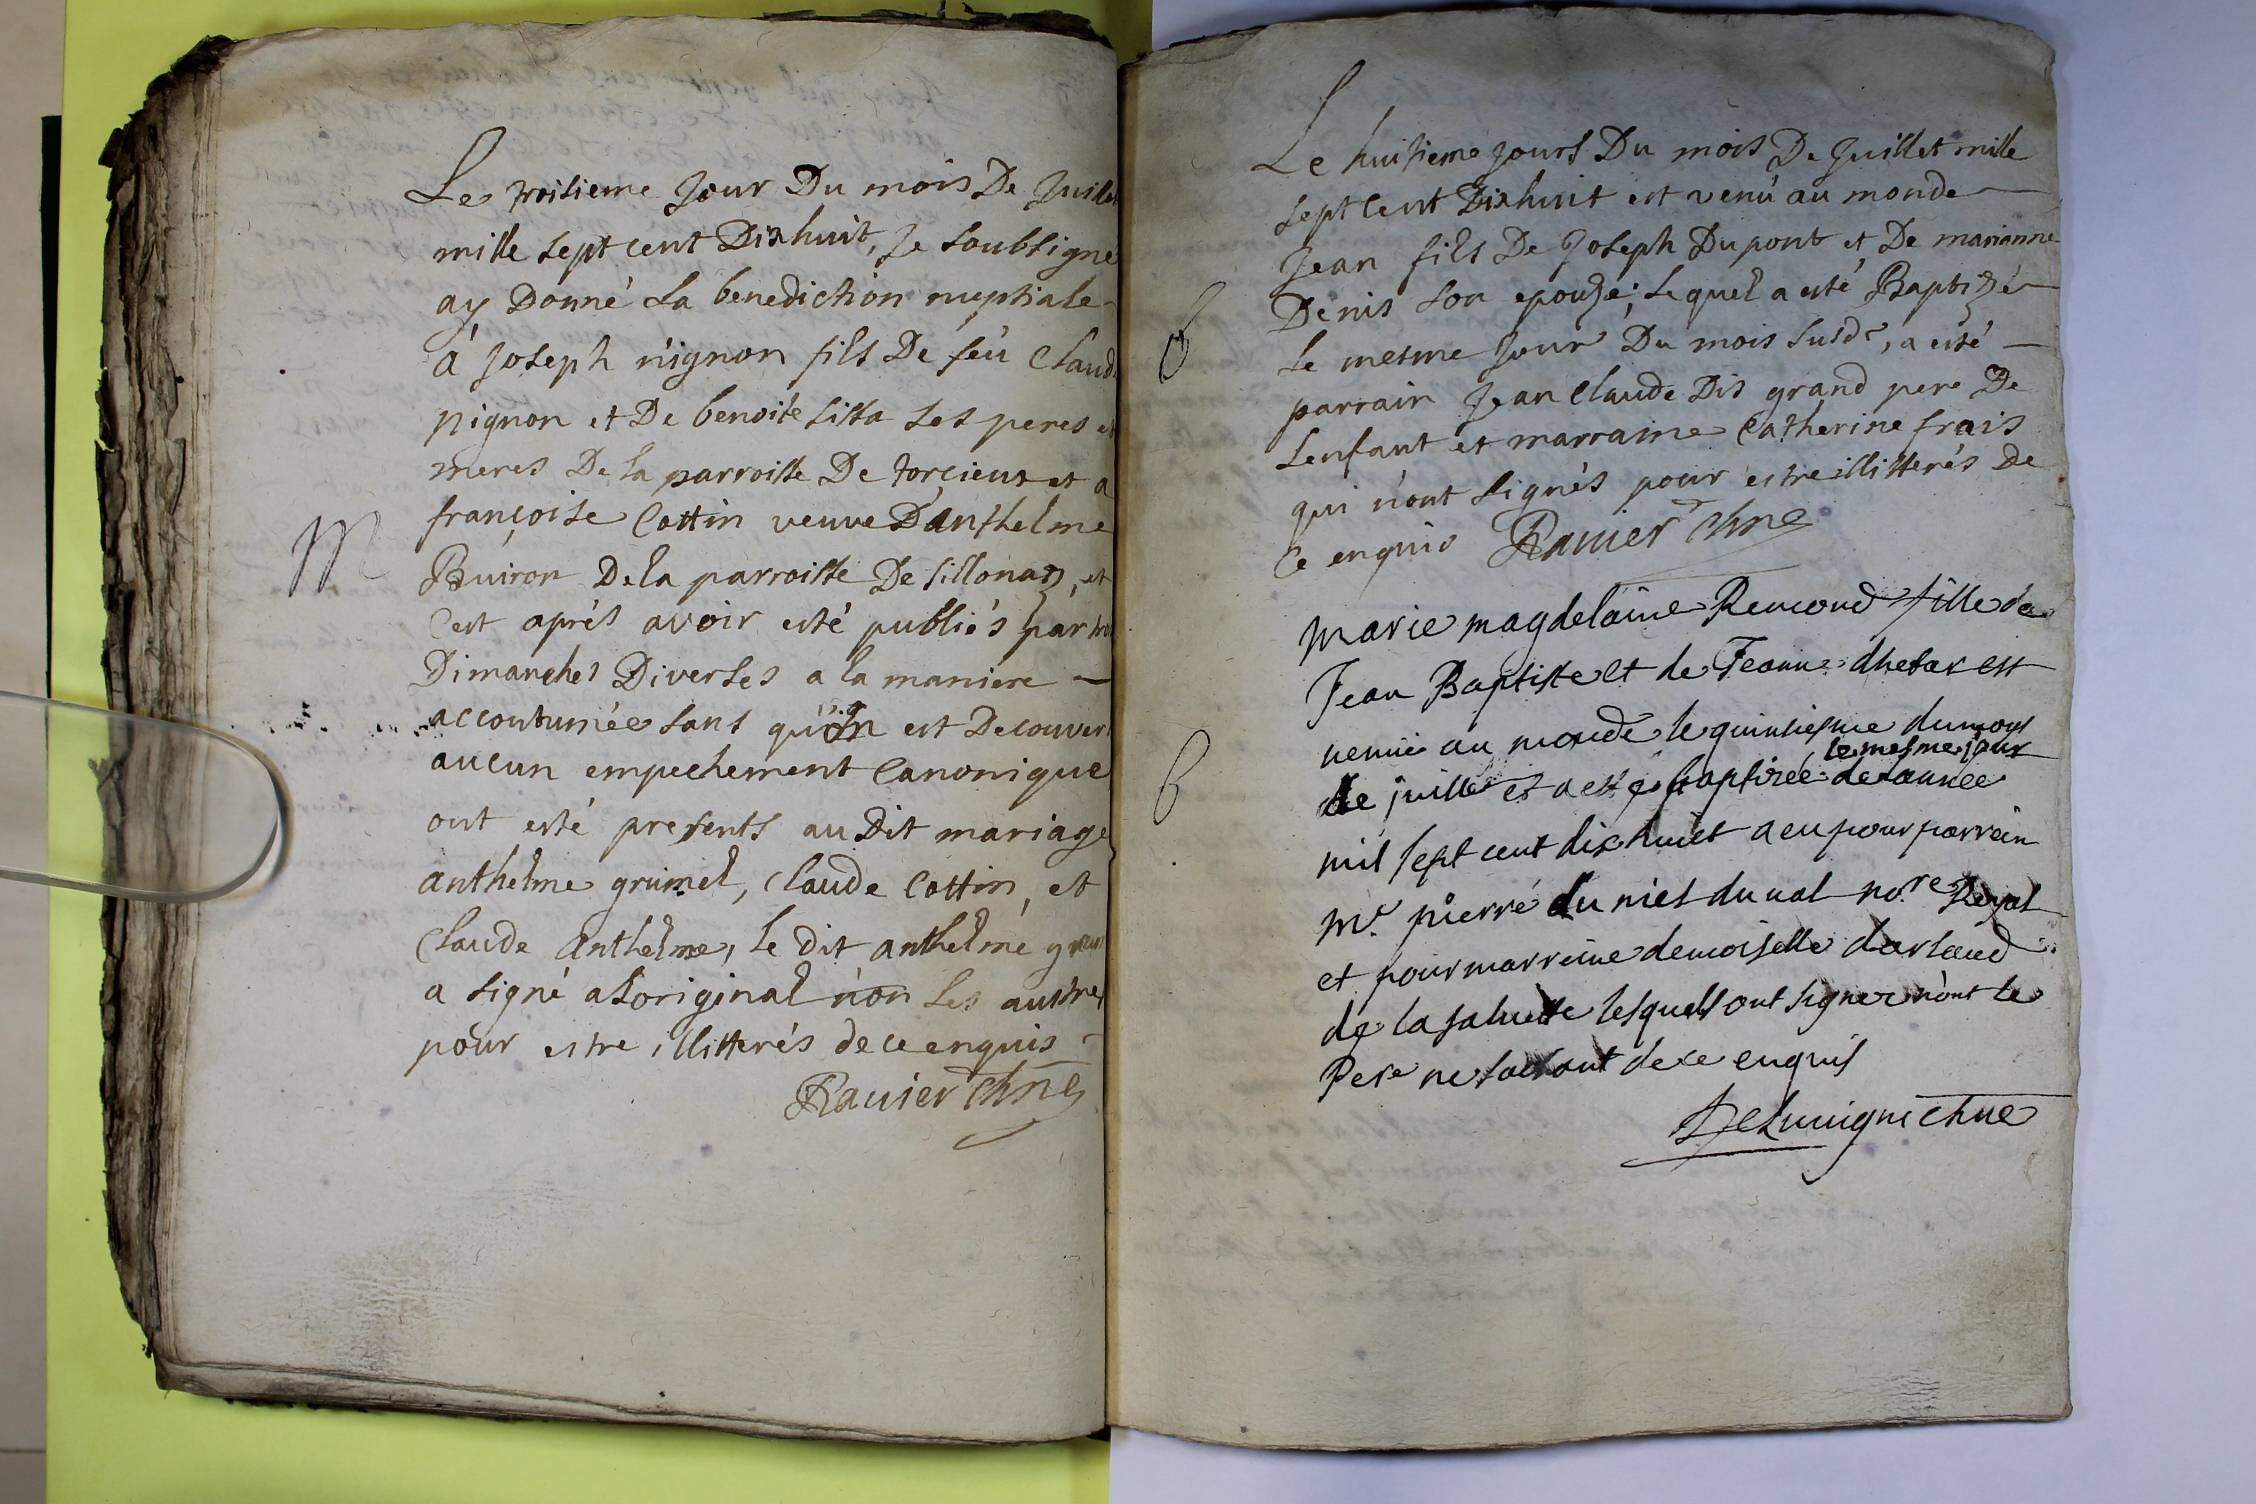 Le troisieme Jour Du mois De Juillet
mille sept cent Dixhuit, Je soubsigné
ay Donné la benediction nuptiale
à Joseph pignon fils De feu Claude
pignon et De benoite sitta ses peres et
meres De la parroisse De torcieux et a
M
françoise Cottin veuve Danthelme
Buiron De la parroisse De sillonaz, et
Cest aprés avoir esté publiés par
Dimanches Diverses a la maniere
accoutumée sans qu'on est Decouvert
aucun empechement Canonique
ont esté presents au Dit mariage
anthelme grumel, Claude Cottin, et
Claude anthelme, le dit anthelme
a signé a Loriginal non les austres
pour estre illitterés de ce enquis
Ravier chne
Le huitieme Jours Du mois De Juillet mille
sept Cent Dixhuit est venu au monde
Jean fils De Joseph Dupont et De marianne
Denis son epouse; lequel a esté Baptizé
B
le mesme Jour Du mois susde, a esté
parrain Jean Claude Dis grand pere De
Lenfant et marraine Catherine frais
qui n'ont signés pour estre illitterés De
Ce enquis Ravier Chne
marie magdelaine Remond fille de
Jean Baptiste et de Jeanne est
venue au monde le quinsiesme du mois
le mesme jour
B
de juillet et a esté baptisée de lannée
mil sept cent dix huict a eu pour parrein
Mr. pierre du niel du val nore Royal
et pour marreine demoiselle darlaud
de la salvette lesquels ont signer non le
Pere ne sachant de ce enquis
chne